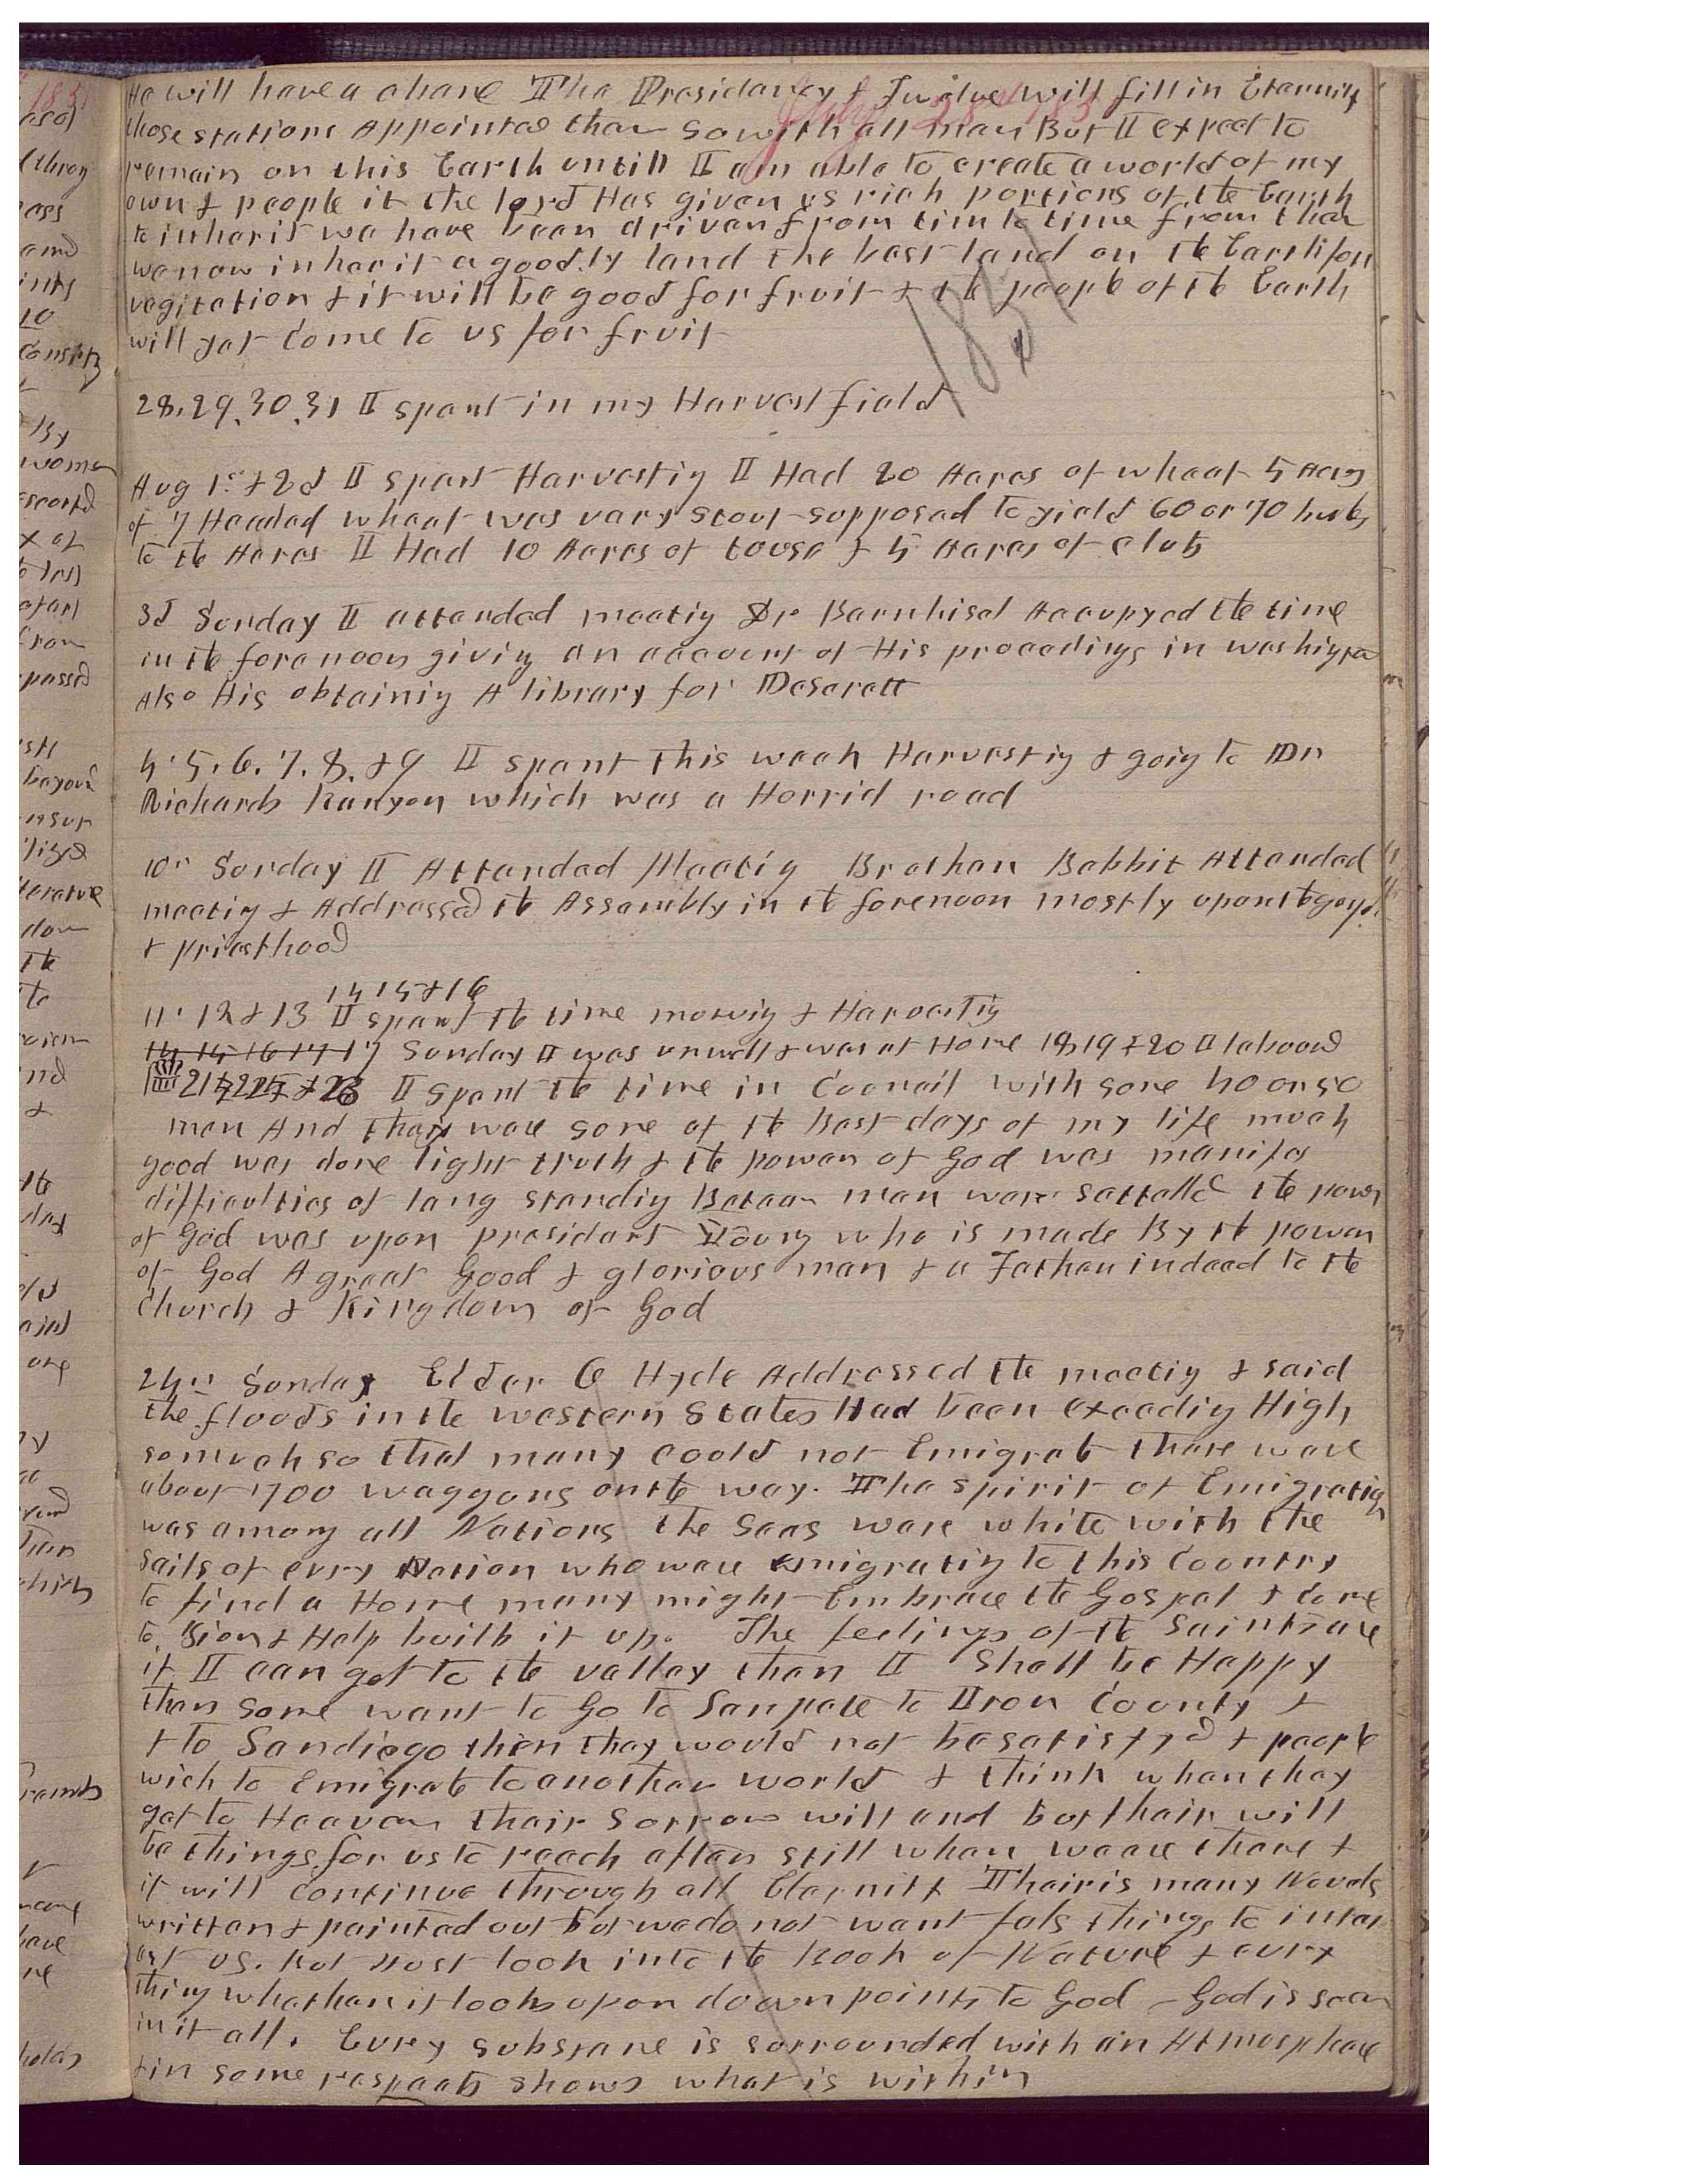 He will have a chance The Presidency & Twelve will fill in Eternity
those stations Appointed them so with all men But I expect to
remain on this Earth untill I am able to create a world of my
own & people it the lord Has given us rich portions of the Earth
to inherit we have been driven from time to time from them
we now inherit a goodly land the best land on the Earth for
vegitation & it will be good for fruit & the people of the Earth
will yet come to us for fruit
1851
28, 29, 30, 31 I spent in my Harvest field
Aug 1st & 2d I spent Harvesting I Had 20 Acres of wheat 5 Acres
of 7 Headed wheat was vary stout supposed to yield 60 or 70 bushs
to the Acres I Had 10 Acres of touse & 5 Acres of club
3d Sunday I attended meeting Dr Barnhisel Accupyed the time
in the forenoon giving an account of His procedings in washigton
Also His obtaining A library for Deserett
4, 5, 6, 7, 8, & 9 I spent this week Harvesting & going to Dr
Richards Kanyon which was a Horrid road
10th Sunday I Attended Meeting Brother Babbit Attended
meeting & Addressed the Assembly in the forenoon mostly upon the gospel
& priesthood
14 15 & 16
11, 12 & 13 I spent the time mowing & Harvesting
14 15 16 17 17 Sunday I was unwell & was at Home 18 19 & 20 I laboord
21 22 & 23 I spent the time in Council with some 40 or 50
men And they ware some of the best days of my life much
good was done light truth & the power of God was manifes
difficulties of long standing Betwen men were settelled the power
of God was upon president Young who is made By the power
of God A great Good & glorious man & a Father indeed to the
Church & Kingdom of God
24th Sunday Elder O Hyde Addressed the meeting & said
the floods in the western States Had been exceding High
so much so that many could not Emigrate there ware
about 1700 waggons on the way. The spirit of Emigrating
was among all Nations the Seas ware white with the
sails of evry Nation who ware emigrating to this Country
to find a Home many might Embrace the Gospel & come
to Zion & Help built it up. The feelings of the Saints are
if I can get to the valley then I Shall be Happy
then some want to Go to Sanpete to Iron County &
& to Sandiego then they would not be satisfyed & people
wish to Emigrate to another world & think when they
get to Heaven their sorrow will end but their will
be things for us to reach after still when we are there &
it will continue through all Eternity Their is many Novels
written & painted out but we do not want fals things to inter
est us. but must look into the Book of Nature & evry
thing whether it looks up or down points to God - God is seen
in it all. Evry substane is surrounded with an Atmosphere
& in some respects shows what is within